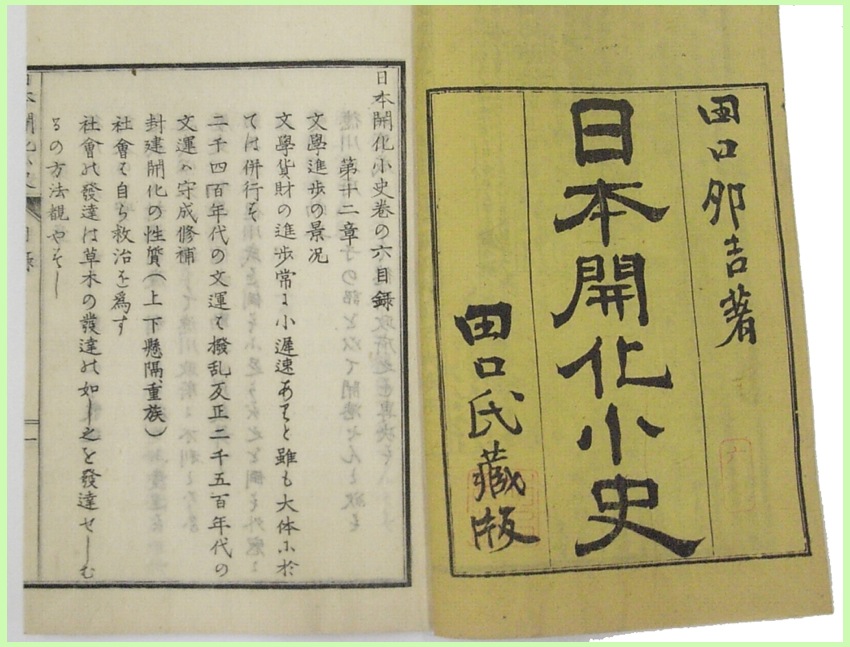 田口卯吉著
日本開化小史
田口氏藏版
日本開化小史巻の六目録
第十二章
文學進歩の景况
文學貨財の進歩常に小遅速あると雖も大体に於
ては併行す
二千四百年代の文運は撥乱反正二千五百年代の
文運ハ守成修補
封建開化の性質(上下懸隔、重族)
社會は自ら救治を為す
社會の發達は草木の發達の如し之を發達せしむ
るの方法観やすし